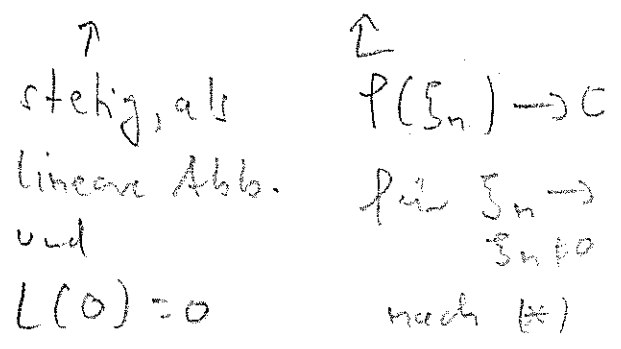 ↑
stetig, als
lineare Abb.
und
L(0)=0
↑
f(ξn) → 0
für ξn →
ξn ≠ 0
nach (*)